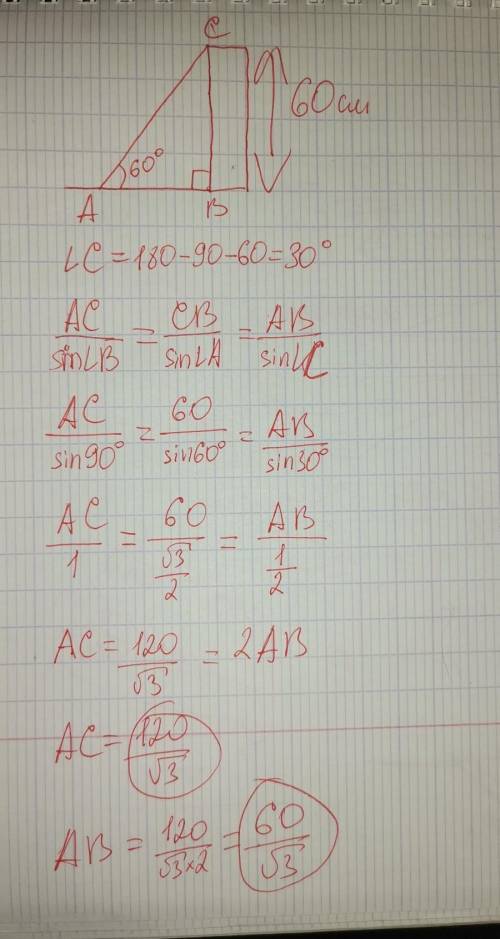 C
60см
60°
A
B
∠C=180-90-60=30°
AC/sin∠B = CB/sin∠A = AB/sin∠C
AC/sin90° = 60/sin60° = AB/sin30°
AC/1 = 60/(√3/2) = AB/(1/2)
AC = 120/√3 = 2AB
AC = 120/√3
AB = 120/(√3×2) = 60/√3